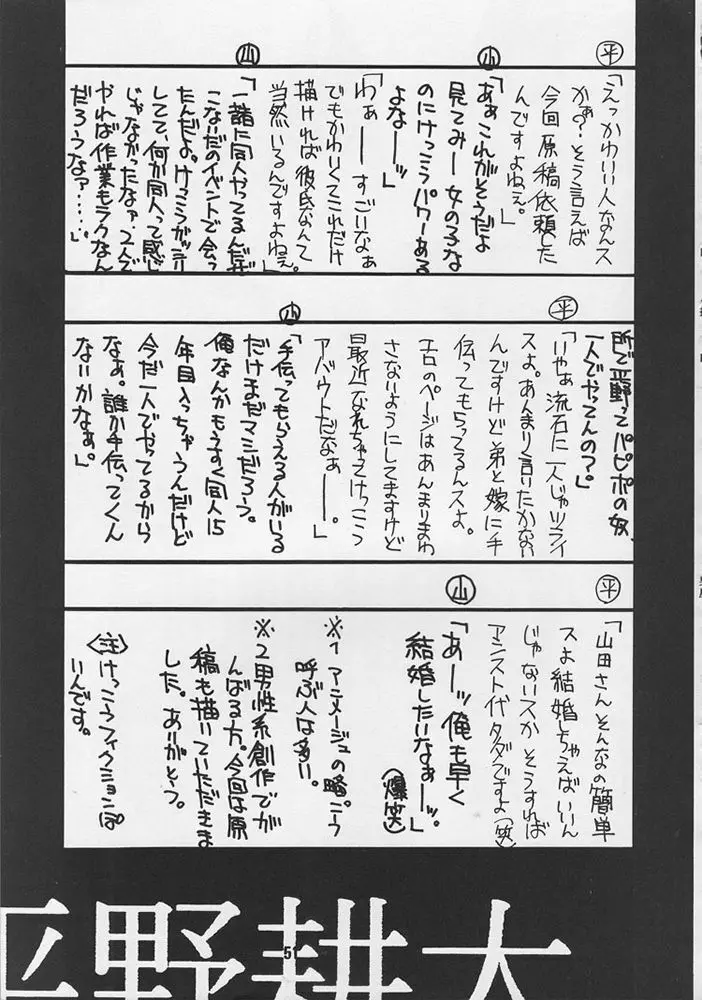 平
「えっかわいい人なんス
かぁ?そう言えば
今回原稿依頼した
んですよねぇ。」
山
「あぁこれがそうだよ
見てみー女の子な
のにけっこうパワーある
よなーッ」
「わぁーーすごいなぁ
でもかわいくてこれだけ
描ければ彼氏なんて
当然いるんですよねぇ。」
山
「一諸に同人やってるんだぜ
こないだのイベントで会っ
たんだよ。けっこうガッシリ
してて、何か同人って感じ
じゃなかったなァ、2人で
やれば作業もラクなん
だろうなァ……」
所で平野ってパピポの奴、
一人でやってんの?」
平
「いやぁ流石に一人じゃツライ
スよ。あんまり言いたかな
んですけど弟と嫁に手
伝ってもらってるんスよ。
エロのページはあんまりまわ
さないようにしてますけど
最近なれちゃってけっこう
アバウトだなぁー。」
山
「手伝ってもらえる人がいる
だけまだマシだろう。
俺なんかもうすぐ同人15
年目入っちゃうんだけど
今だ一人でやってるから
なぁ。誰か手伝ってくん
ないかなぁ。」
平
「山田さんそんなの簡単
スよ結婚しちゃえばいいん
じゃないスか そうすれば
アシスト代タダですよ(笑)
山
「あーッ俺も早く
結婚したいなぁーッ。」
(爆笑)
※1 アニメージュの略。こう
呼ぶ人は多い。
※2 男性系創作でが
んばる方。今回は原
稿も描いていただきま
した。ありがとう。
<注>けっこうフィクションぽ
いんです。
平野耕太
51